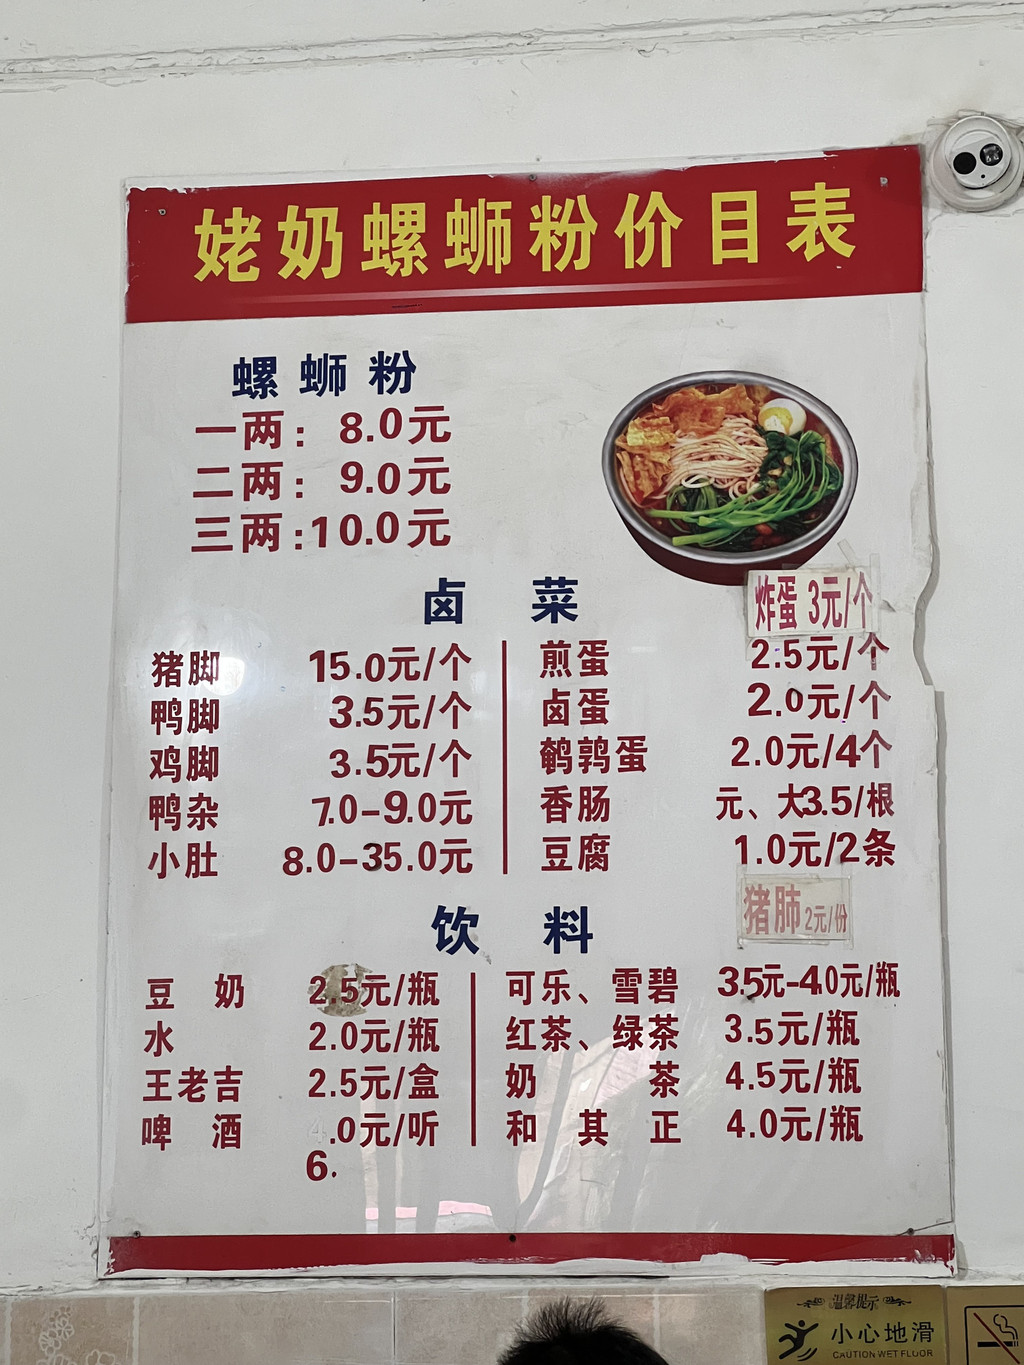 姥奶螺蛳粉价目表
螺蛳粉
一两：8.0元
二两：9.0元
三两：10.0元
卤 菜
炸蛋 3元/个
猪脚 15.0元/个
鸭脚 3.5元/个
鸡脚 3.5元/个
鸭杂 7.0-9.0元
小肚 8.0-35.0元
煎蛋 2.5元/个
卤蛋 2.0元/个
鹌鹑蛋 2.0元/4个
香肠 元、大3.5/根
豆腐 1.0元/2条
猪肺 2元/份
饮 料
豆奶 2.5元/瓶
水 2.0元/瓶
王老吉 2.5元/盒
啤酒 .0元/听
6.
可乐、雪碧 3.5元-4.0元/瓶
红茶、绿茶 3.5元/瓶
奶茶 4.5元/瓶
和其正 4.0元/瓶
温馨提示
小心地滑
CAUTION WET FLOOR